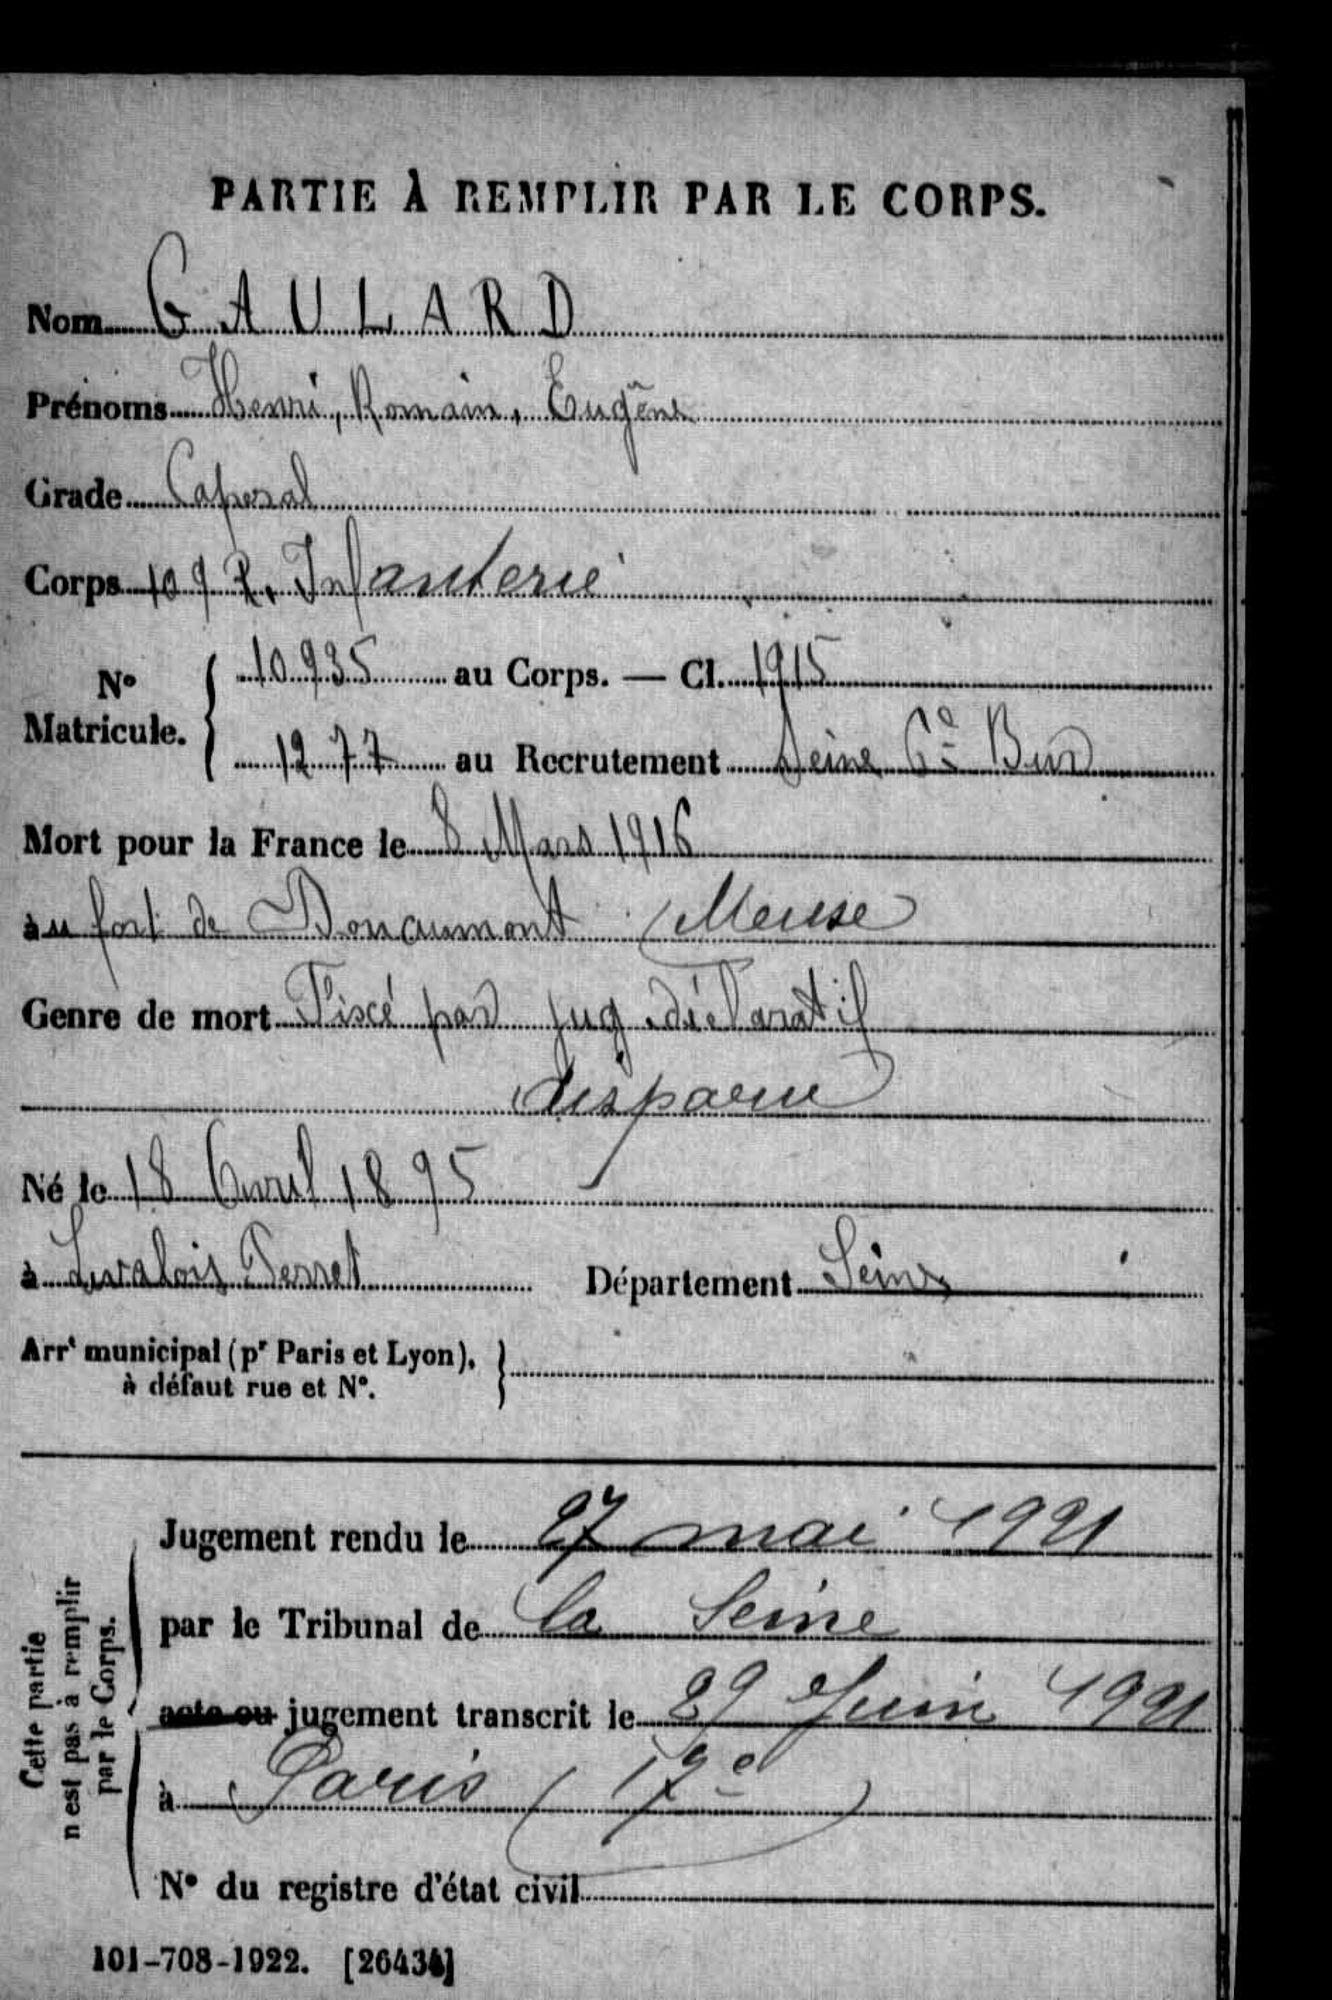 PARTIE À REMPLIR PAR LE CORPS.
Nom GAULARD
Prénoms Henri, Romain, Eugène
Grade Caporal
Corps 109 R. Infanterie
N° Matricule. 10935 au Corps. — Cl. 1915
1277 au Recrutement Seine 6e Bur
Mort pour la France le 8 Mars 1916
au fort de Douaumont (Meuse
Genre de mort Fixé par jug. déclaratif
disparu
Né le 18 Avril 1895
à Levalois Perret Département Seine
Arrt municipal (pr Paris et Lyon),
à défaut rue et N°.
Cette partie
n'est pas à remplir
par le Corps.
Jugement rendu le 27 mai 1921
par le Tribunal de la Seine
acte ou jugement transcrit le 29 Juin 1921
à Paris (17e)
N° du registre d'état civil
101-708-1922. [26434]